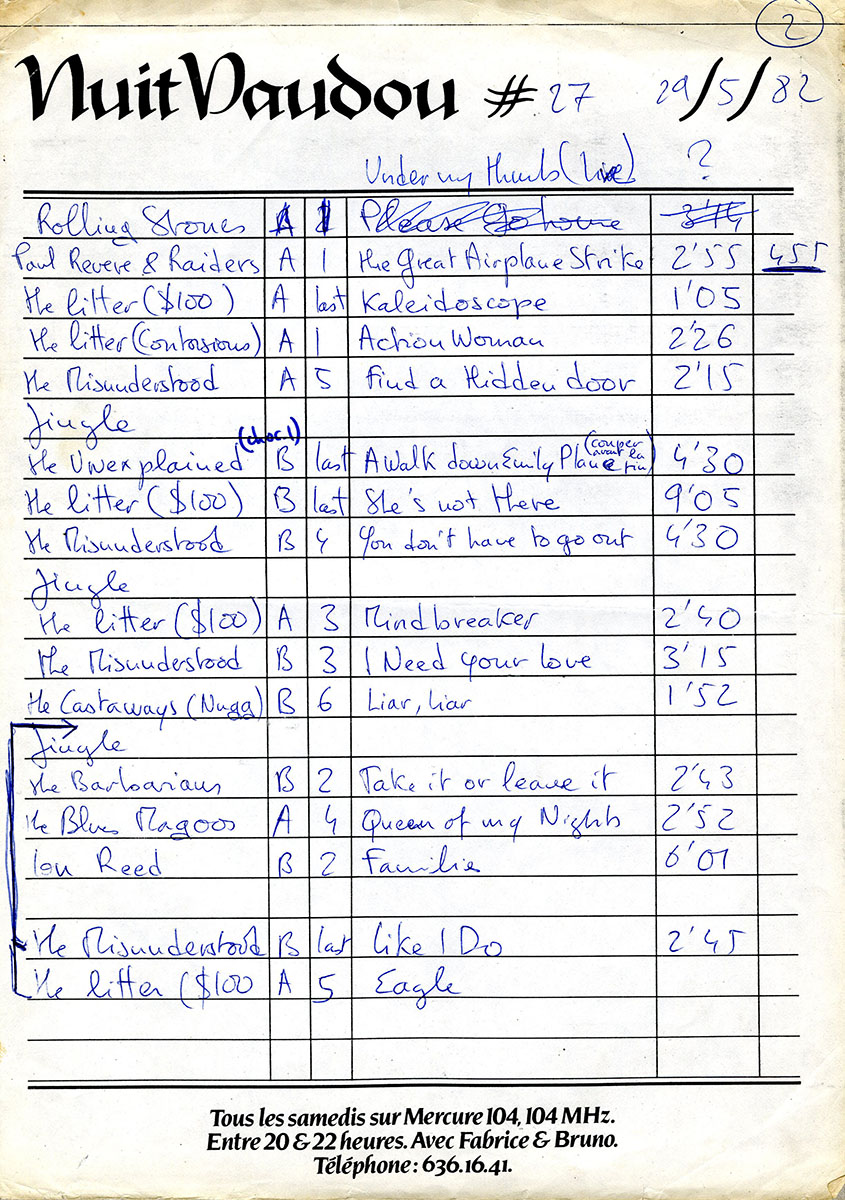 2
Nuit Vaudou # 27 29/5/82
Under my thumb (live) ?
Rolling Stones A 1 Please Go home 3'14
Paul Revere & Raiders A 1 the Great Airplane Strike 2'55 455
the litter ($100) A last Kaleidoscope 1'05
the litter (Contorsions) A 1 Action Woman 2'26
the Misunderstood A 5 Find a Hidden door 2'15
Jingle
the Unexplained (choc.1) B last A Walk down Emily Plane (couper avant la fin) 4'30
the litter ($100) B last She's not there 9'05
the Misunderstood B 4 You don't have to go out 4'30
Jingle
the litter ($100) A 3 Mindbreaker 2'40
the Misunderstood B 3 I Need your love 3'15
the Castaways (Nugg) B 6 Liar, liar 1'52
Jingle
the Barbarians B 2 Take it or leave it 2'43
the Blues Magoos A 4 Queen of my Nights 2'52
Lou Reed B 2 Families 6'01
the Misunderstood B last like I Do 2'45
the litter ($100 A 5 Eagle
Tous les samedis sur Mercure 104, 104 MHz.
Entre 20 & 22 heures. Avec Fabrice & Bruno.
Téléphone : 636.16.41.